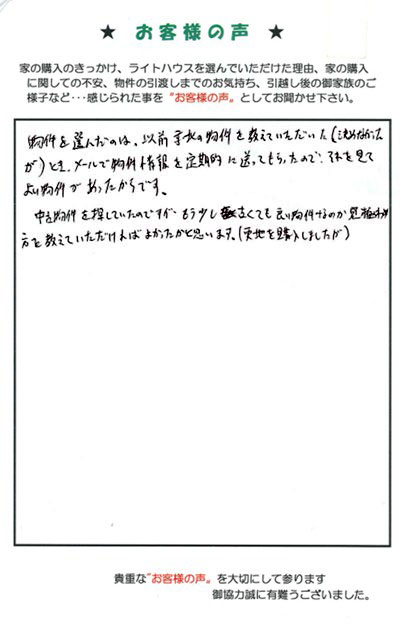 ★ お客様の声 ★
家の購入のきっかけ、ライトハウスを選んでいただけた理由、家の購入
に関しての不安、物件の引渡しまでのお気持ち、引越し後の御家族のご
様子など・・・感じられた事を“お客様の声”としてお聞かせ下さい。
物件を選んだのは、以前 の物件を教えていただいた(決めなかった
が)とき、メールで物件情報を定期的に送ってもらったので、それを見て
よい物件があったからです。
中古物件を探していたのですが、もう少し 古くても良い物件なのか見極め
方を教えていただければよかったかと思います。(更地を購入しましたが)
貴重な“お客様の声”を大切にして参ります
御協力誠に有難うございました。